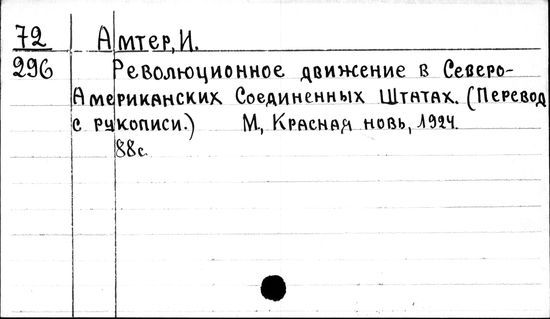 72 Амтер, И.
296 Революционное движение в Северо-
Американских Соединенных Штатах. (Перевод
с рукописи.) М, Красная новь, 1924.
88с.